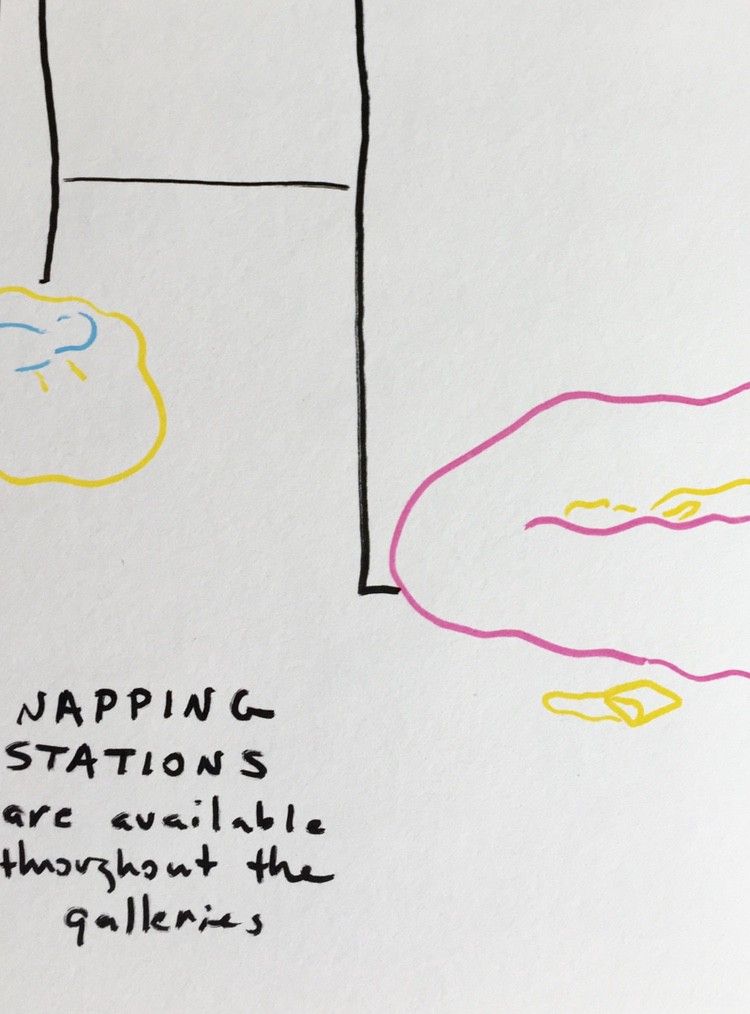 NAPPING
STATIONS
are available
throughout the
galleries